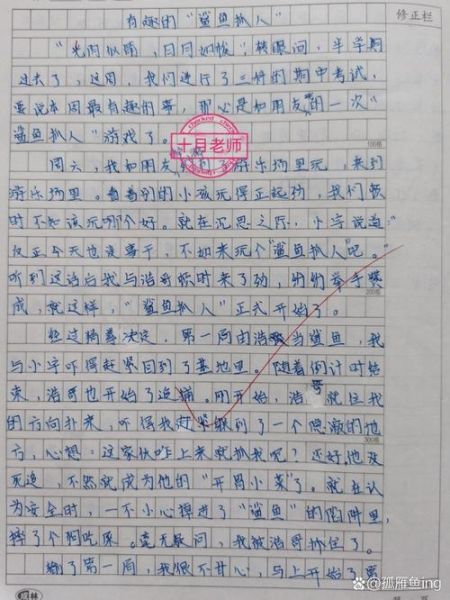 有趣的“鲨鱼抓人”
修正栏
“光阴似箭，日月如梭”，转眼间，半学期
过去了，这周，我们进行了三科的期中考试，
要说本周最有趣的事，那必是和朋友的一次“
鲨鱼抓人”游戏了。
十月老师
100格
周六，我和朋友游乐场里玩，来到
游乐场里。看着别的小孩玩得正起劲，我们顿
时不知该玩哪个好。就在沉思之际，小宇说道：“
反正今天也没事干，不如来玩个“鲨鱼抓人”吧。”
听到这话后我与浩哥顿时来了劲，们举手赞
200格
成，就这样，“鲨鱼抓人”正式开始了。
经过猜拳决定，第一局由浩哥当鲨鱼，我
与小宇吓得赶紧回到了基地里。随着倒计时结
束，浩哥也开始了追捕。刚开始，浩哥就往我
的方向扑来，吓得我赶紧躲到了一个隐蔽的地
300格
方，心想：这家伙咋上来就抓我呢？还好，他没
死追，不然就成为他的“开胃小菜”了。就在认
为安全时，一不小心掉进了“鲨鱼”的陷阱里，
摔了个狗吃屎。毫无疑问，我被浩哥抓住了。
输了第一局，我很不甘心，马上开始了第
林
知乎 @孤雁鱼ing